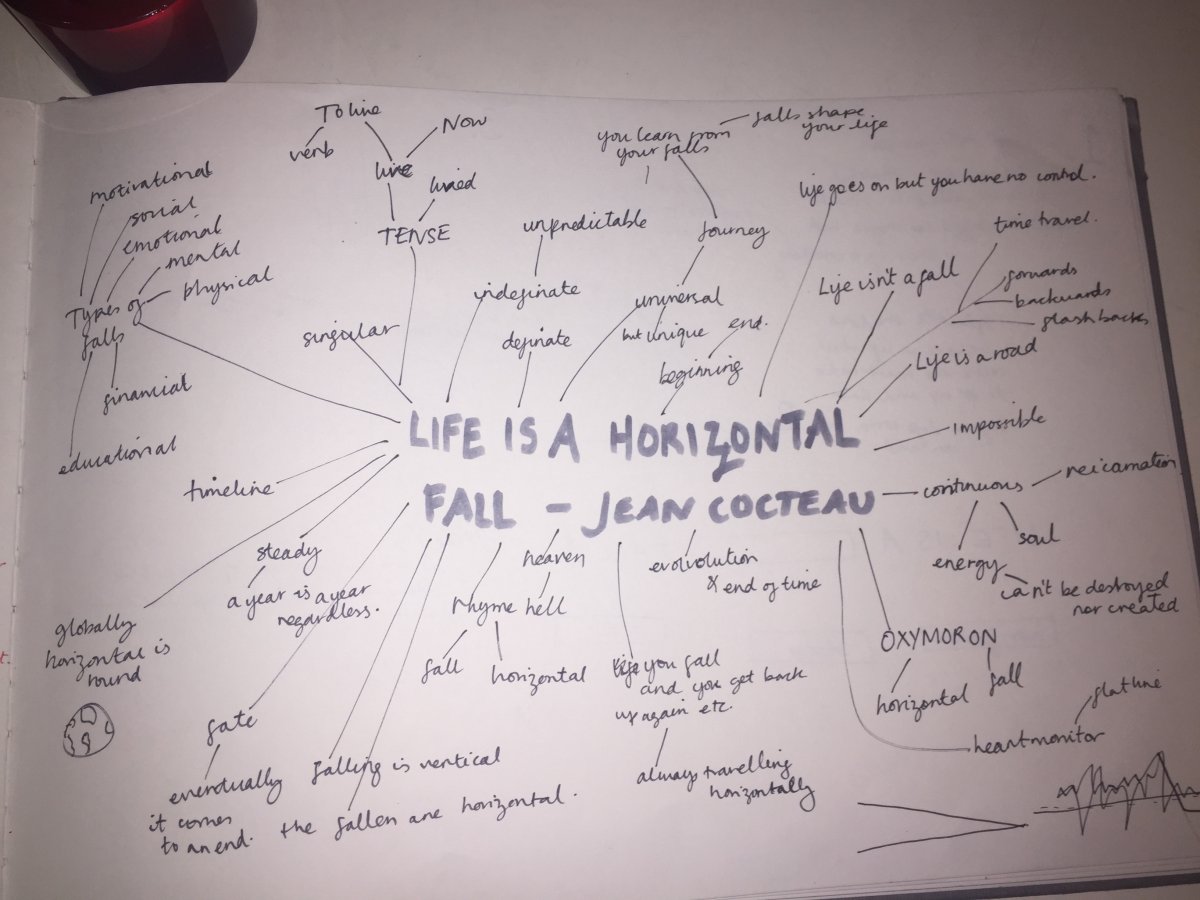 To live
verb
live
Now
lived
TENSE
singular
motivational
social
emotional
mental
physical
Types of
falls
financial
educational
unpredictable
indefinate
definate
you learn from
your falls
falls shape
your life
Journey
universal
but unique
end.
beginning
life goes on but you have no control.
time travel.
forwards
backwards
flashbacks
Life isn't a fall
Life is a road
impossible
LIFE IS A HORIZONTAL
FALL - JEAN COCTEAU
timeline
steady
a year is a year
regardless.
globally
horizontal is
round
fate
eventually
it comes
to an end.
falling is vertical
the fallen are horizontal.
heaven
hell
rhyme
fall
horizontal
evolvolution
& end of time
you fall
and you get back
up again etc.
always travelling
horizontally
continuous
reicarnation
soul
energy
can't be destroyed
nor created
OXYMORON
horizontal
fall
heart monitor
flatline